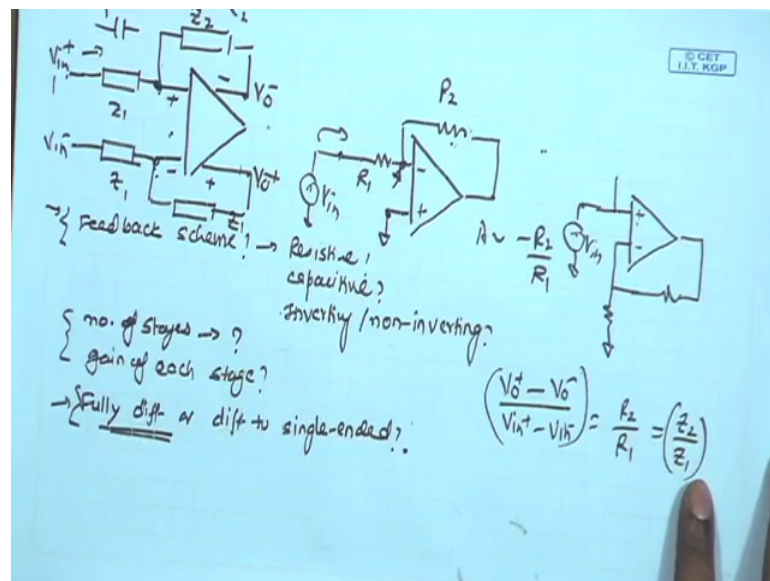 Z2
© CET
I.I.T. KGP
Vin+ →
Z1
+
-
Vo-
Vin-
Z1
-
+
Vo+
Z1
R2
R1
Vin
-
+
A ~ -R2/R1
Vin
+
-
→ { Feedback scheme? → Resistive,
capacitive?
Inverting / non-inverting?
{ no. of stages → ?
gain of each stage?
→ { Fully diff or diff to single-ended?
(Vo+ - Vo-/Vin+ - Vin-) = R2/R1 = (Z2/Z1)